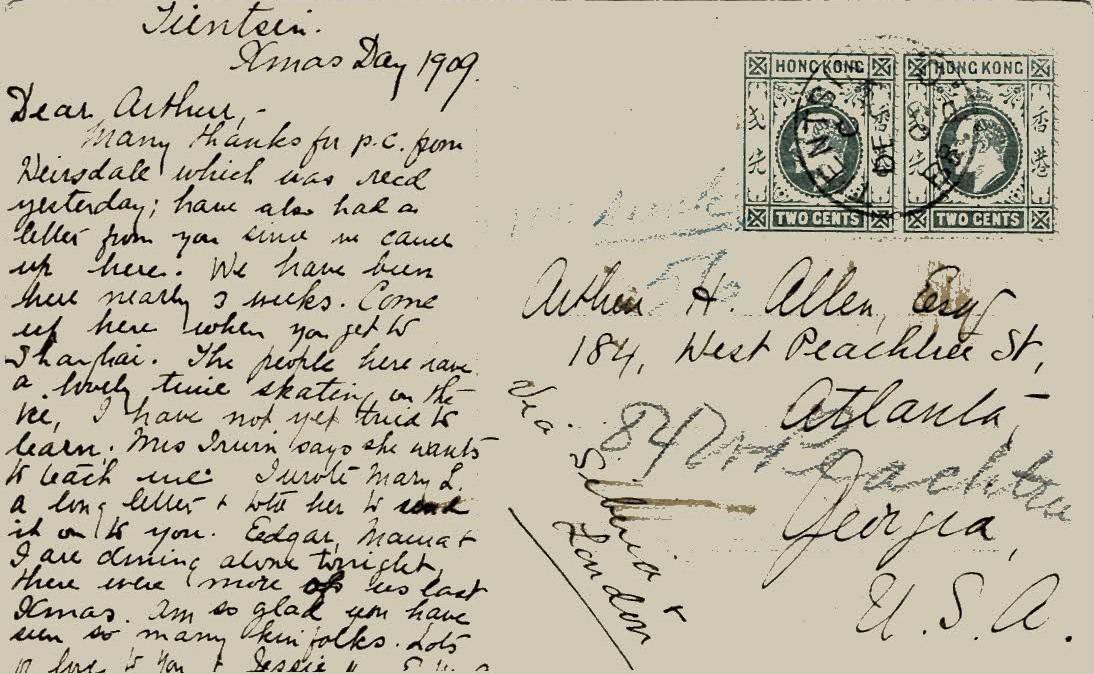 Tientsin.
Xmas Day 1909.
Dear Arthur,-
Many thanks for p.c. from
Weirsdale which was recd
yesterday; have also had a
letter from you since we came
up here. We have been
here nearly 3 weeks. Come
up here when you get to
Shanghai. The people here have
a lovely time skating on the
ice, I have not yet tried to
learn. Mrs Irwin says she wants
to teach me. I wrote Mary L.
a long letter & told her to send
it on to you. Edgar, Mama &
I are dining alone tonight,
there were more of us last
Xmas. Am so glad you have
seen so many kinfolks. Lots
of love to you & Jessie
HONG KONG
貳先
香港
TWO CENTS
HONG KONG
貳先
香港
TWO CENTS
TIENTSIN
DE
09
Arthur H. Allen, Esq
184, West Peachtree St,
Atlanta,
Georgia,
U.S.A.
Via
Siberia &
London
84 W Peachtree